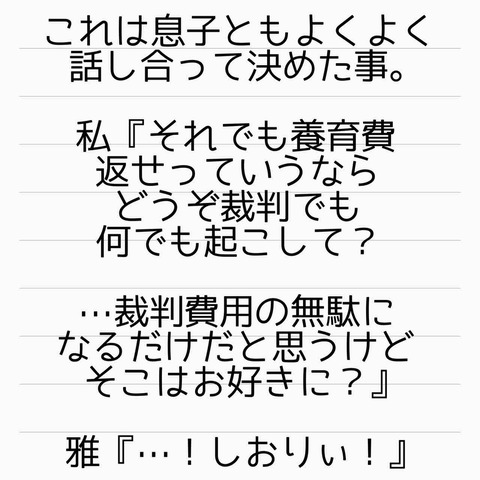 これは息子ともよくよく
話し合って決めた事。
私『それでも養育費
返せっていうなら
どうぞ裁判でも
何でも起こして？
…裁判費用の無駄に
なるだけだと思うけど
そこはお好きに？』
雅『…！しおりぃ！』